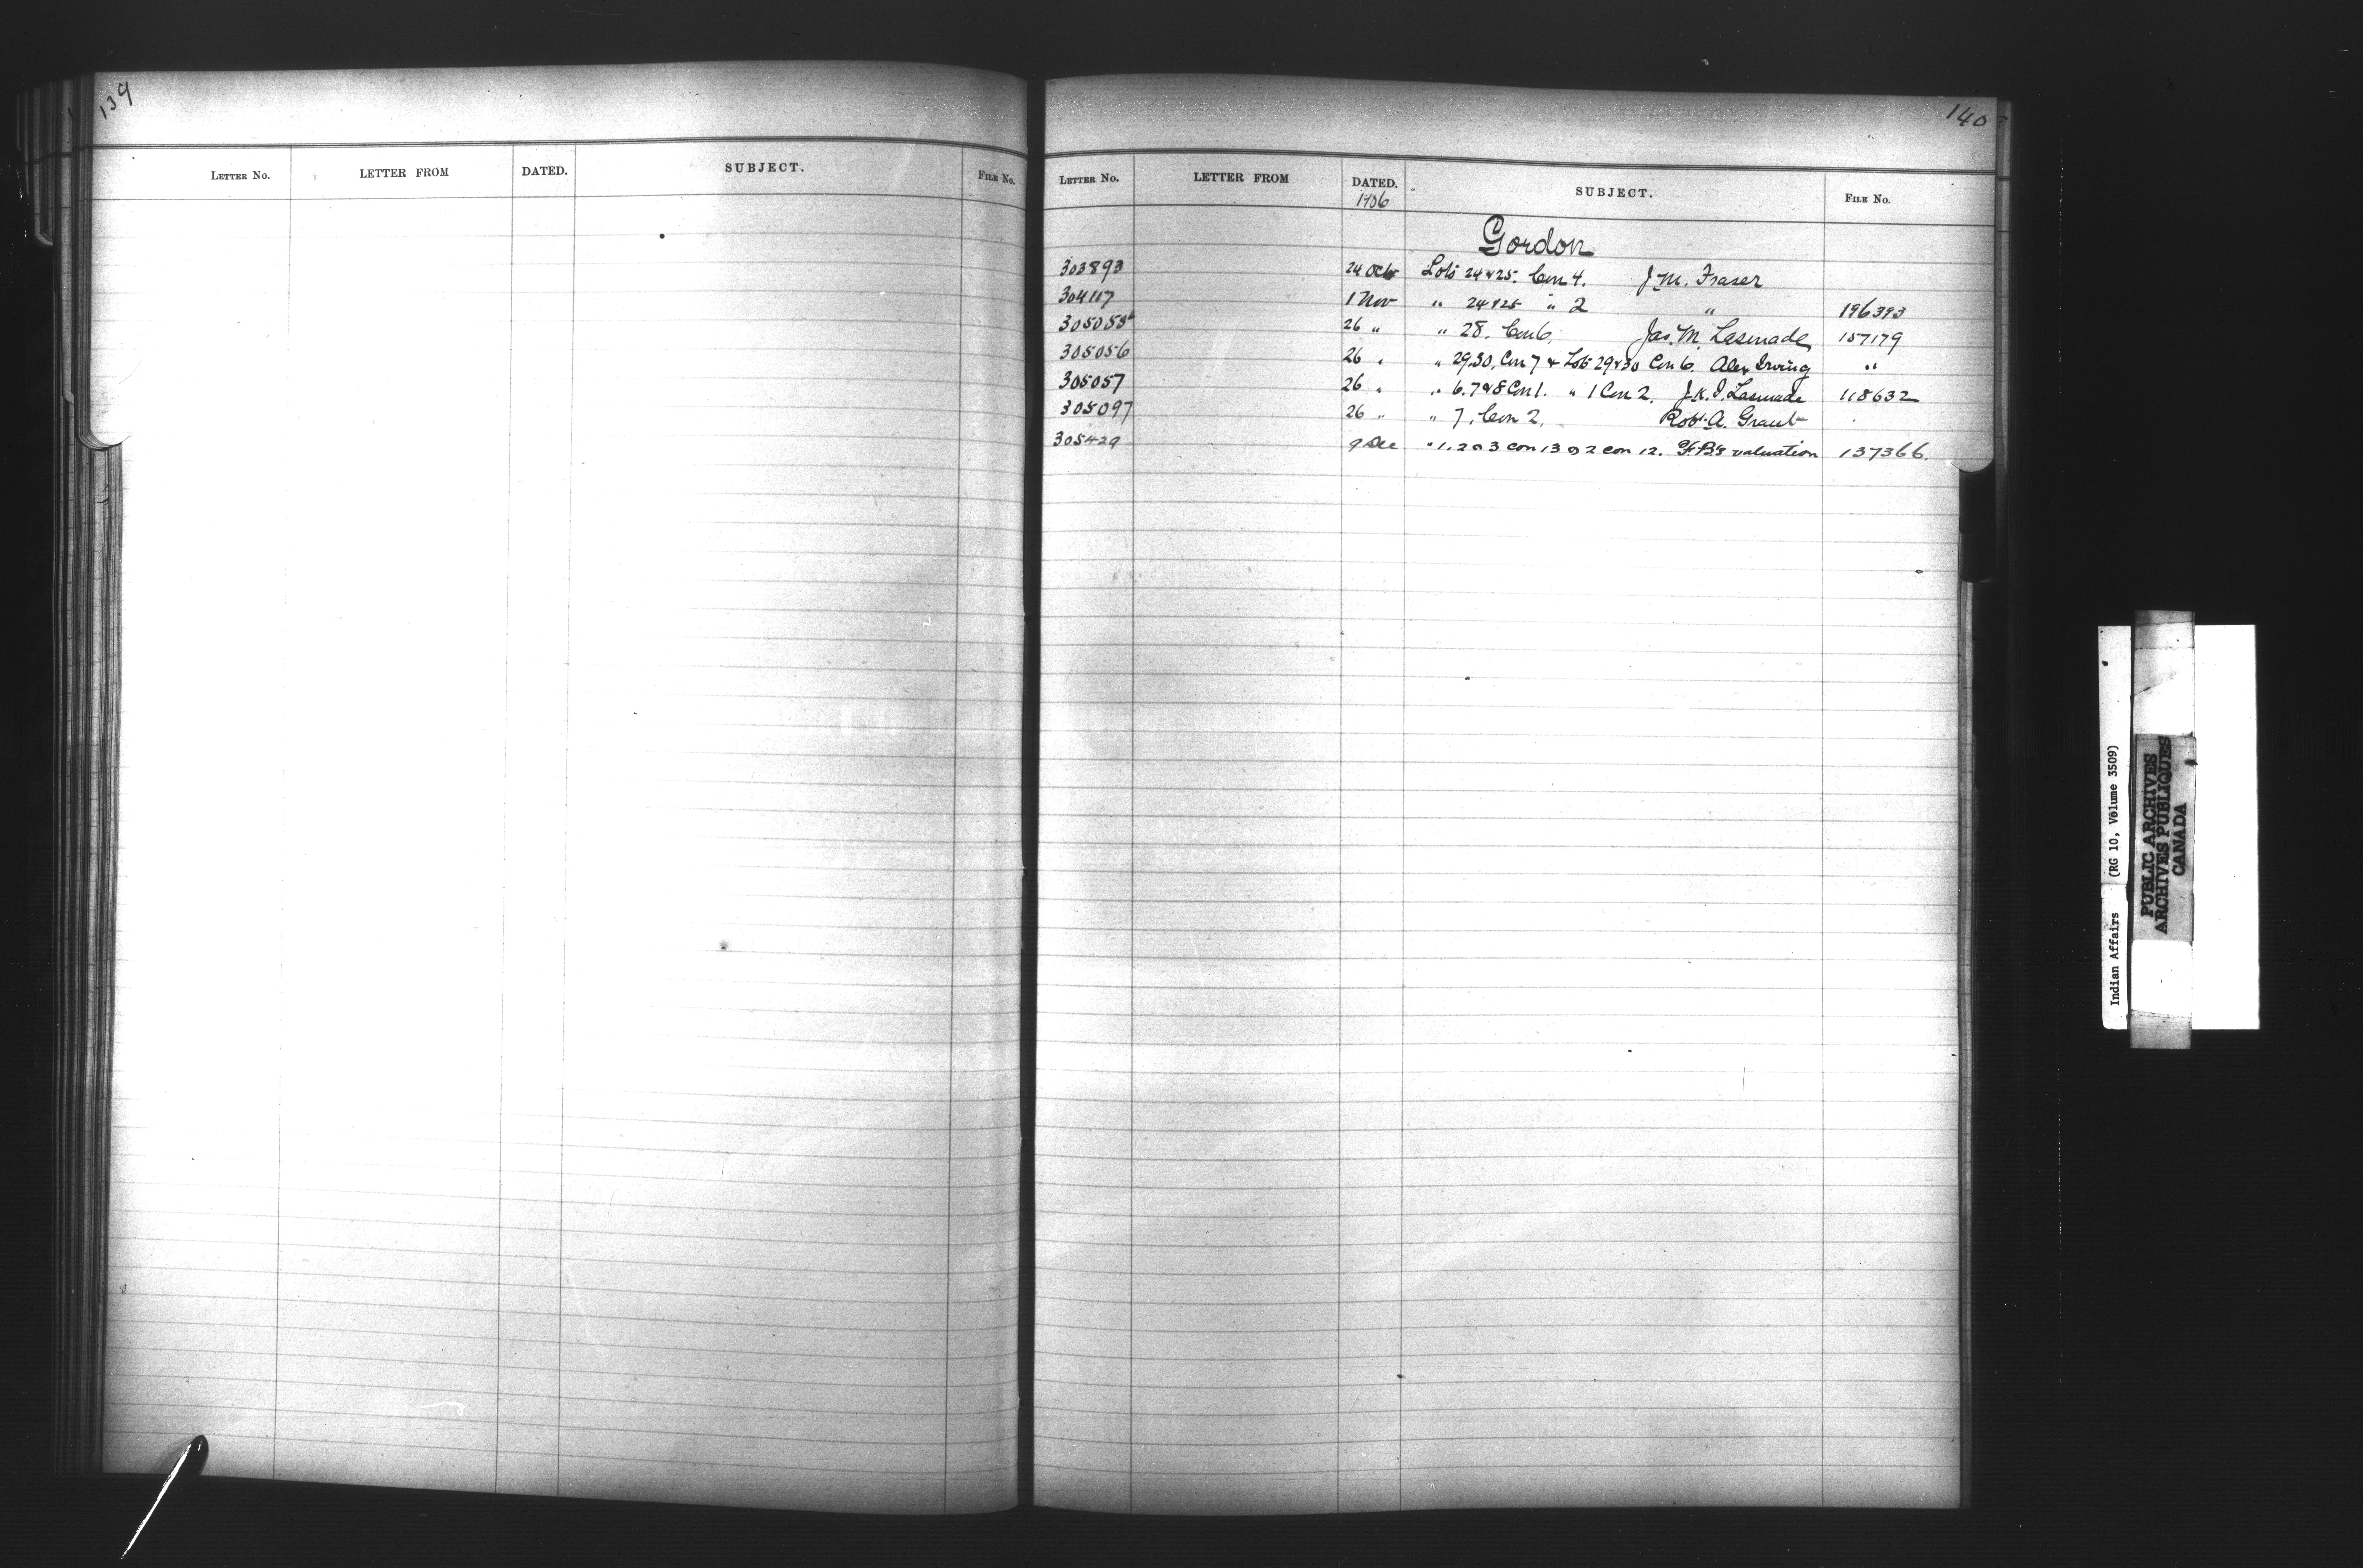 139
LETTER No. LETTER FROM DATED. SUBJECT. FILE No.
140
LETTER No. LETTER FROM DATED. SUBJECT. FILE No.
1906
Gordon
303893 24 Oct Lots 24 & 25. Con 4. J. M. Fraser
304117 1 Nov " 24 & 25 " 2 " 196393
305055 26 " " 28. Con 6. Jas. M. 157179
305056 26 " " 29.30. Con 7 & Lots 29 & 30 Con 6. Alex Irving "
305057 26 " " 6.7 & 8 Con 1. " 1 Con 2. 118632
305097 26 " " 7. Con 2. Robt. A. Grant
305429 9 Dec " 1. 2 & 3 con 13 & 2 con 12. valuation 137366.
Indian Affairs (RG 10, Volume 3509)
PUBLIC ARCHIVES
ARCHIVES PUBLIQUES
CANADA